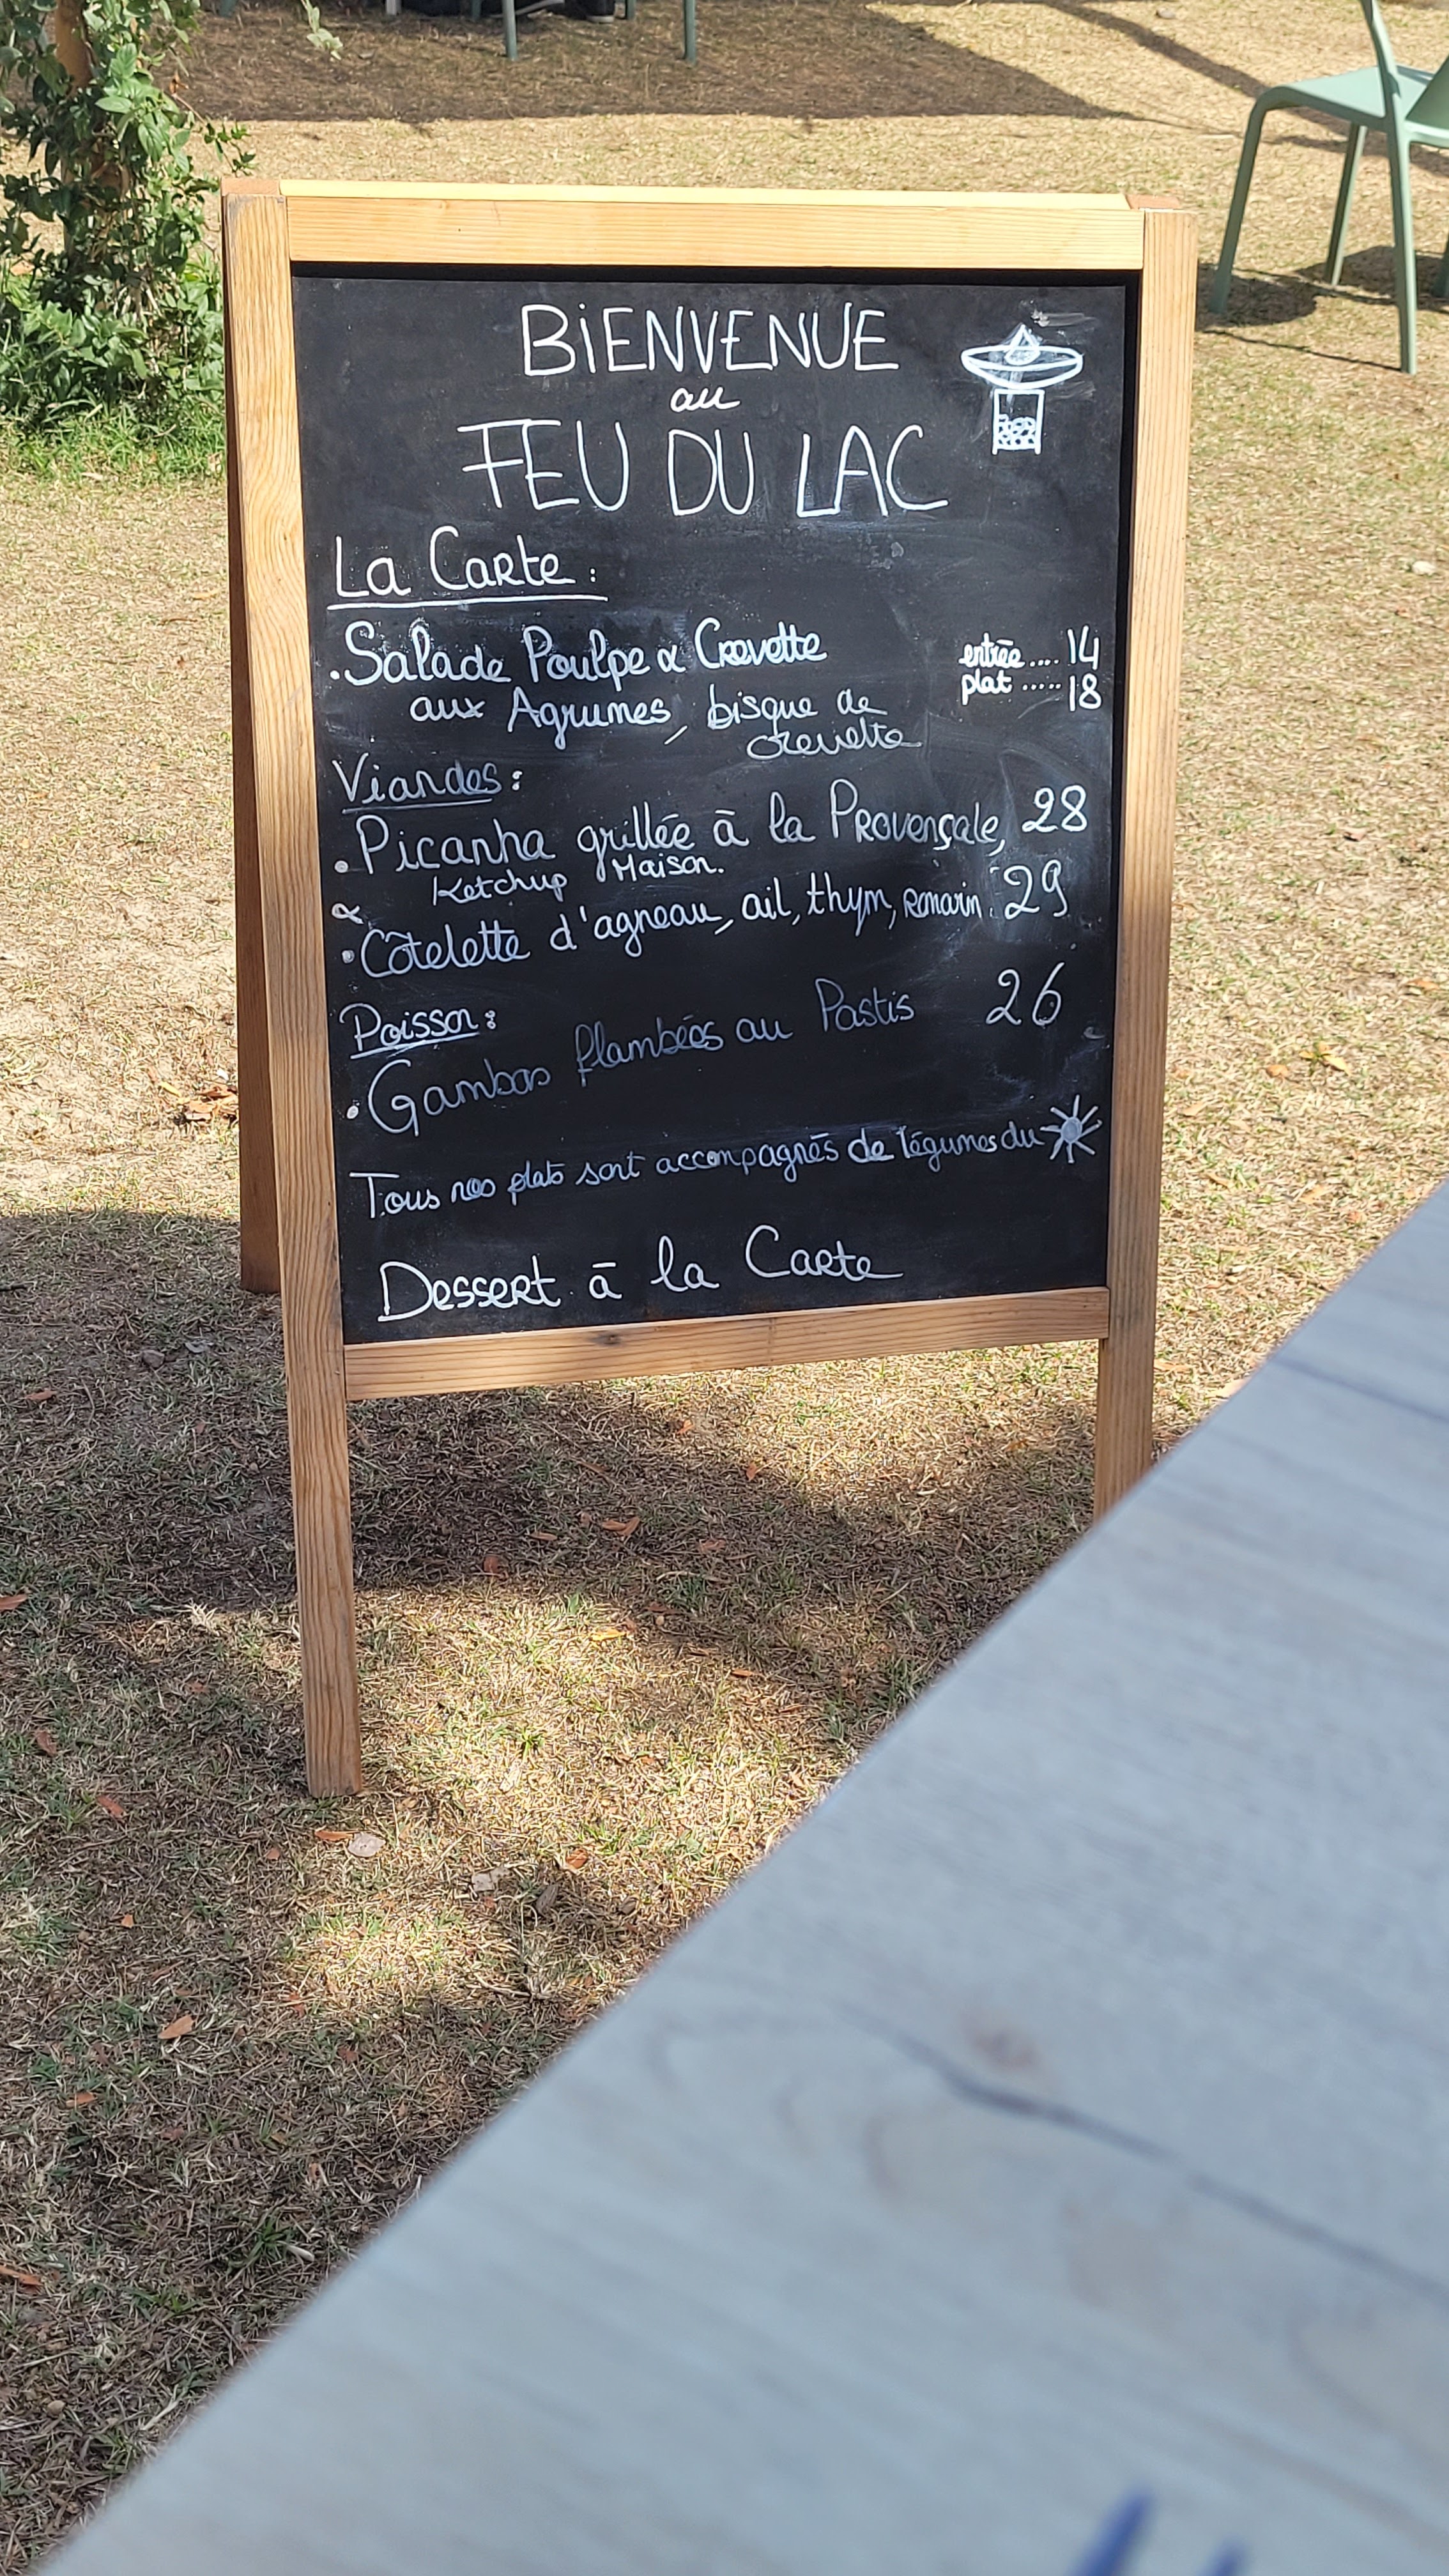 BIENVENUE
au
FEU DU LAC
La Carte :
. Salade Poulpe & Crevette entrée .... 14
plat ..... 18
aux Agrumes, bisque de
crevette
Viandes :
. Picanha grillée à la Provençale, 28
& Ketchup Maison.
. Côtelette d'agneau, ail, thym, romarin : 29
Poisson :
. Gambas flambées au Pastis 26
Tous nos plats sont accompagnés de légumes du
Dessert à la Carte